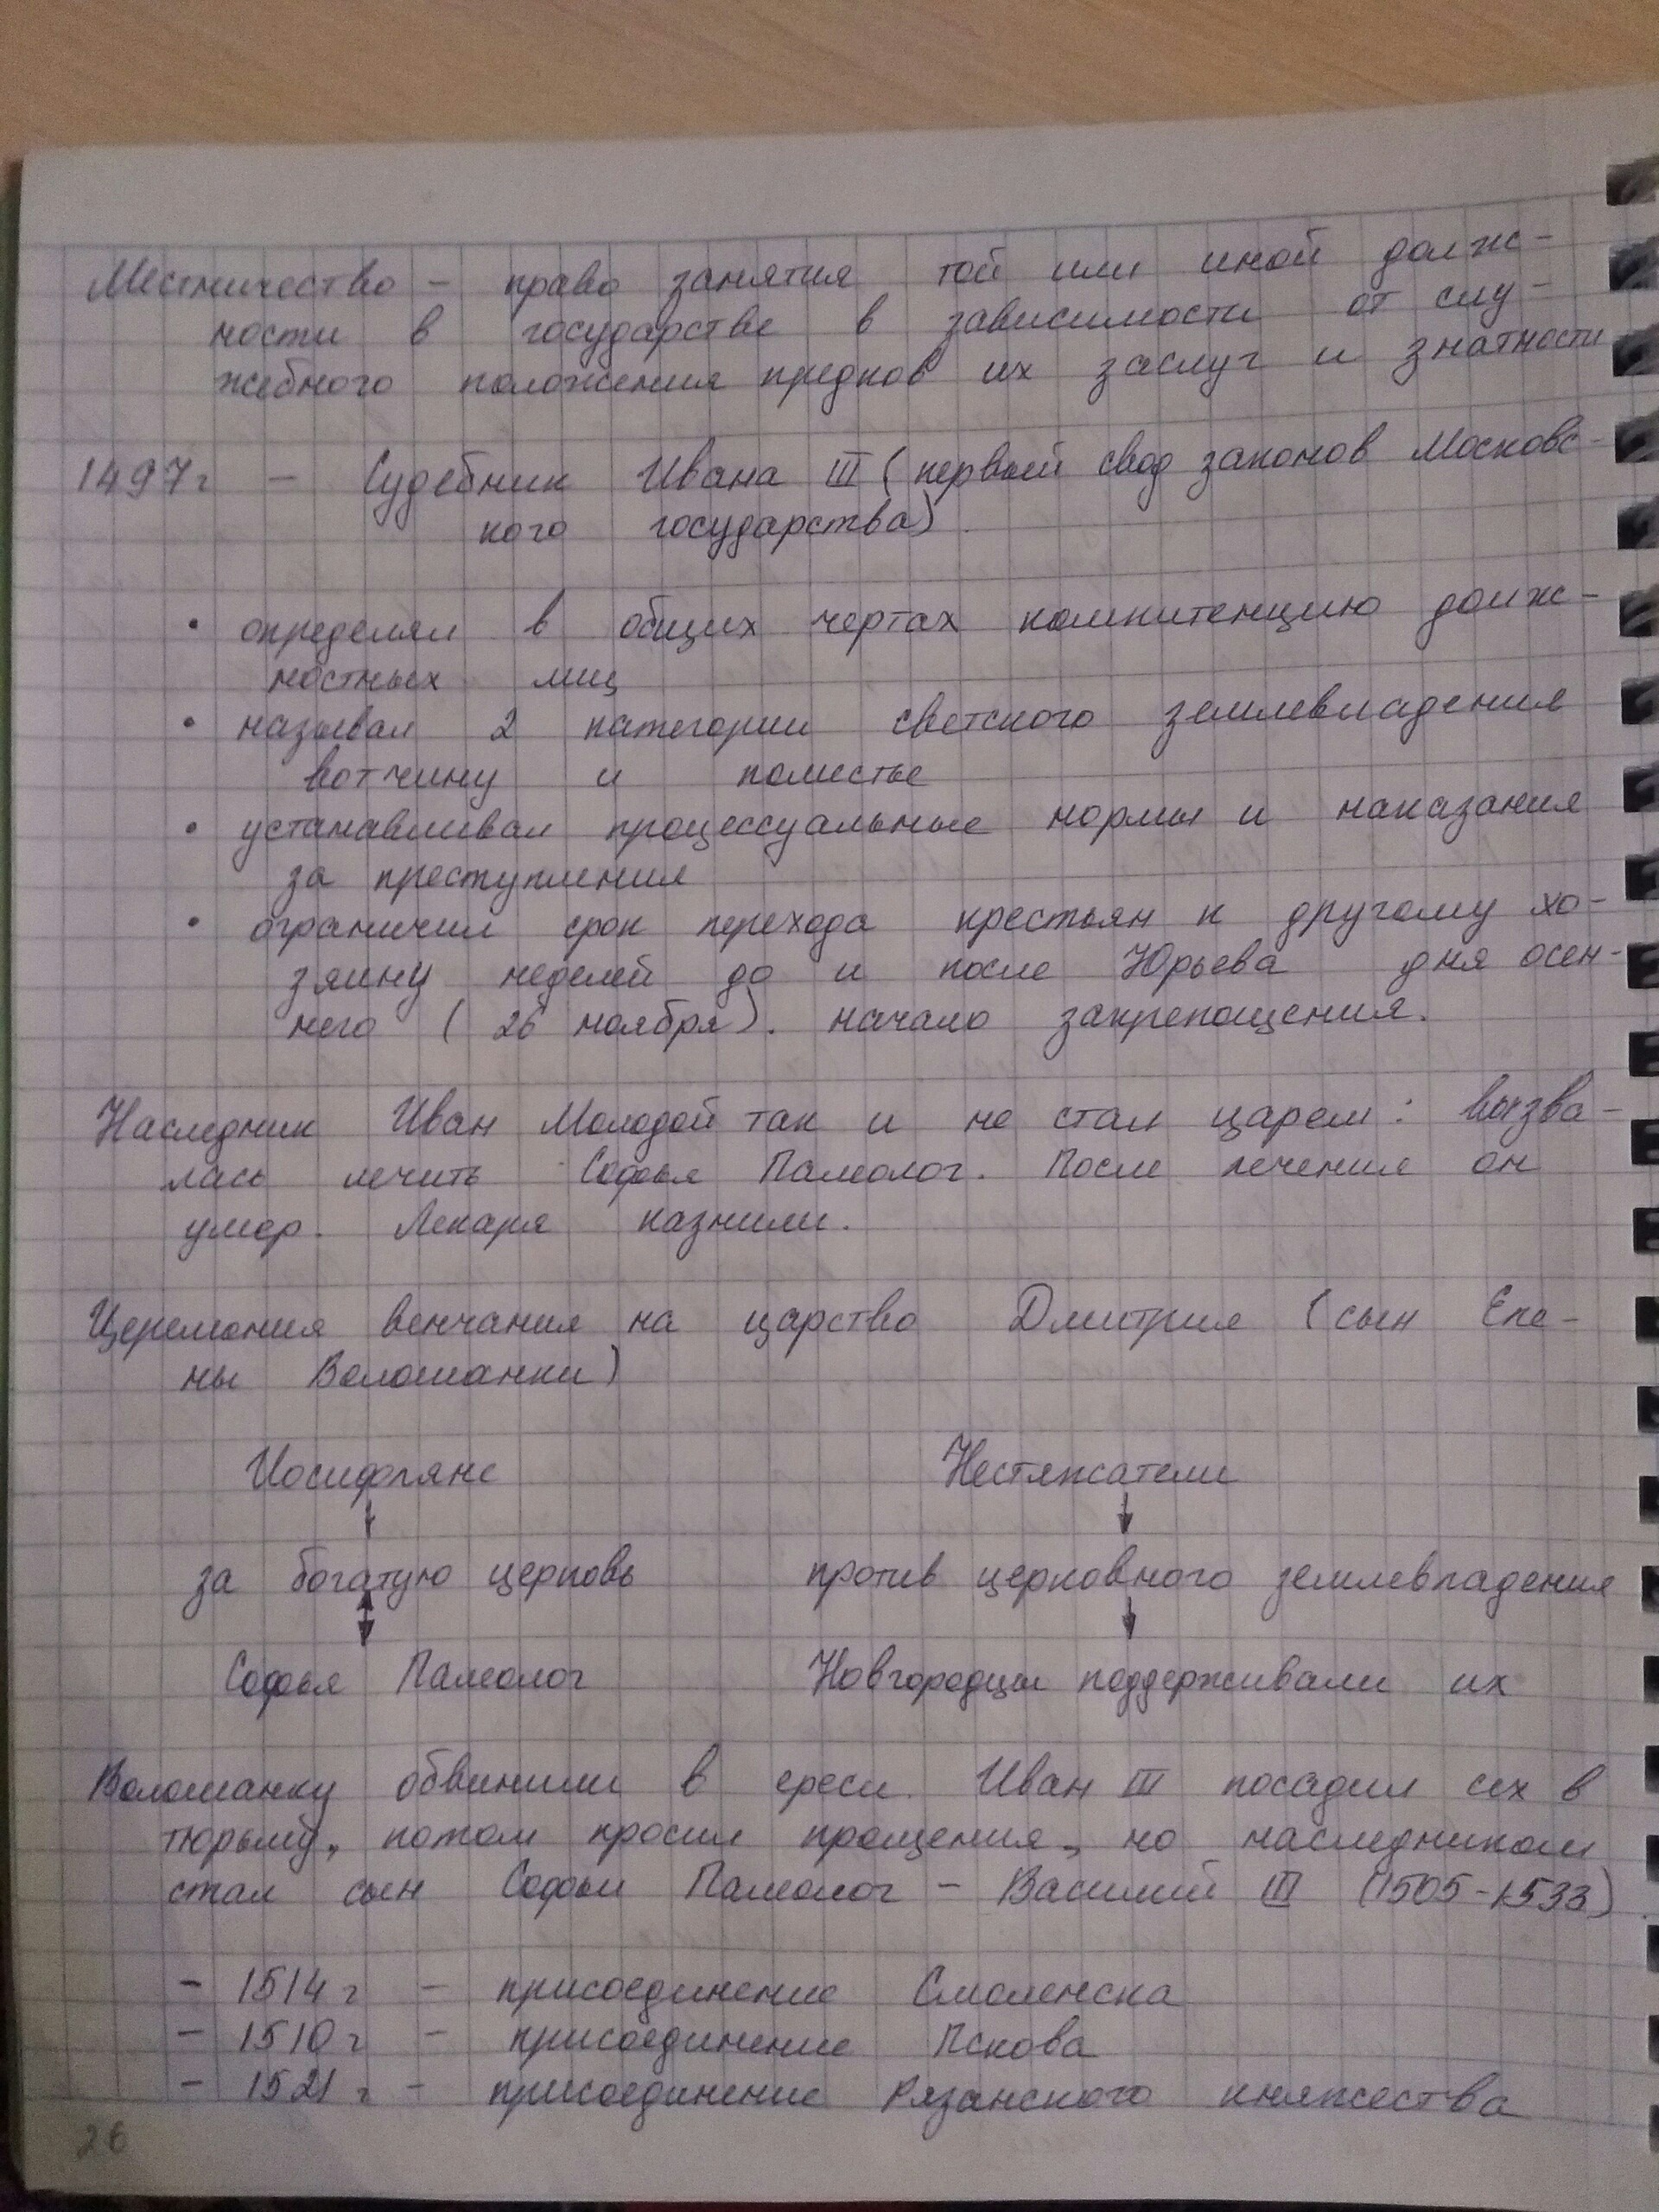 Местничество – право занятия той или иной долж-
ности в государстве в зависимости от слу-
жебного положения предков их заслуг и знатности
1497г – Судебник Ивана III (первый свод законов Московс-
кого государства).
• определял в общих чертах компитенцию долж-
ностных лиц
• называл 2 категории светского землевладения
вотчину и поместье
• устанавливал процессуальные нормы и наказания
за преступления
• ограничил срок перехода крестьян к другому хо-
зяину неделей до и после Юрьева дня осен-
него (26 ноября). начало закрепощения.
Наследник Иван Молодой так и не стал царем: вызва-
лась лечить Софья Палеолог. После лечения он
умер. Лекаря казнили.
Церемония венчания на царство Дмитрия (сын Еле-
ны Волошанки)
Иосифляне Нестяжатели
за богатую церковь против церковного землевладения
Софья Палеолог Новгородцы поддерживали их
Волошанку обвинили в ереси. Иван III посадил их в
тюрьму, потом просил прощения, но наследником
стал сын Софьи Палеолог – Василий III (1505-1533)
– 1514г – присоединение Смоленска
– 1510г – присоединение Пскова
– 1521г – присоединение Рязанского княжества
26